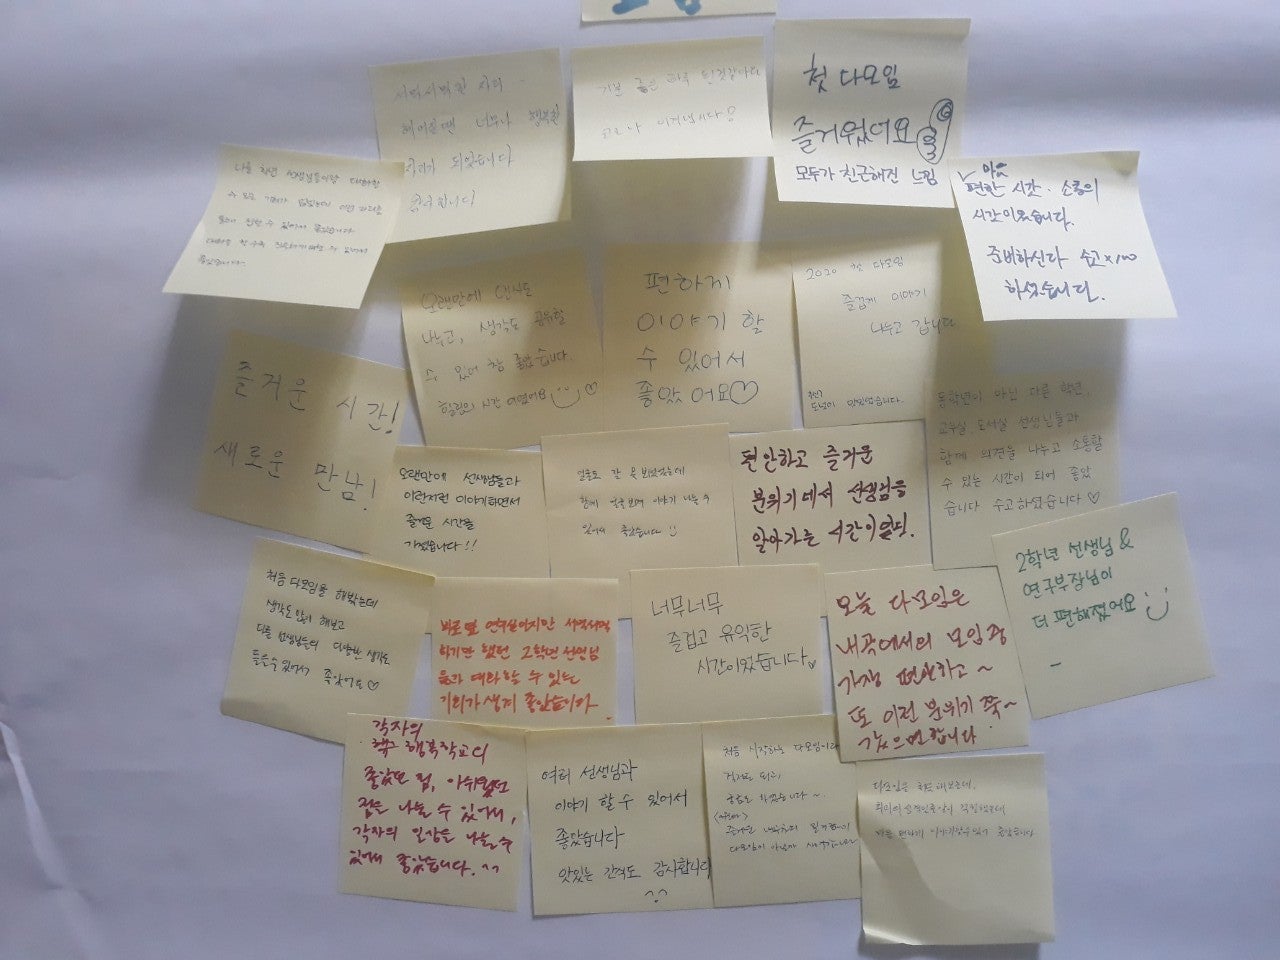 헤어질땐 너무나 행복한
되었습니다
기분 좋은 하루 된것같아요
코로나 이겨냅시다!
첫 다모임
즐거웠어요
모두가 친근해진 느낌
마음
편한 시간. 소통의
시간이었습니다.
준비하신다 수고×100
하셨습니다.
선생님들이랑
오랜만에 간식도
나누고, 생각도 공유할
수 있어 참 좋았습니다.
힐링의 시간 이였어요 ♡
편하게
이야기 할
수 있어서
좋았어요♡
2020 첫 다모임
즐겁게 이야기
나누고 갑니다
맛있었습니다.
즐거운 시간!
새로운 만남!
동학년이 아닌 다른 학년,
교무실 도서실 선생님들과
함께 의견을 나누고 소통할
수 있는 시간이 되어 좋았
습니다 수고하셨습니다♡
오랜만에 선생님들과
이런저런 이야기하면서
즐거운 시간을
가졌습니다!!
얼굴도 잘 못 뵈었었는데
함께 얼굴보며 이야기 나눌 수
있어서 좋았습니다
편안하고 즐거운
분위기에서 선생님을
알아가는 시간이였다.
2학년 선생님 &
연구부장님이
더 편해졌어요
처음 다모임을 해봤는데
생각도 많이 해보고
다른 선생님들의 다양한 생각도
들을수 있어서 좋았어요♡
바로 옆 연구실이지만 서먹서먹
하기만 했던 2학년 선생님
들과 대화할 수 있는
기회가 생겨 좋았습니다.
너무너무
즐겁고 유익한
시간이었습니다♡
오늘 다모임은
내곡에서의 모임 중
가장 편안하고~
또 이런 분위기 쭉~
갔으면합니다
각자의
행복학교의
좋았던 점, 아쉬웠던
점을 나눌 수 있어서,
각자의 일상을 나눌 수
있어서 좋았습니다.^^
여러 선생님과
이야기 할 수 있어서
좋았습니다
맛있는 간식도 감사합니다
^^
처음 시작하는 다모임이라
다모임을 처음 해보는데,
이야기할수있어 좋았습니다